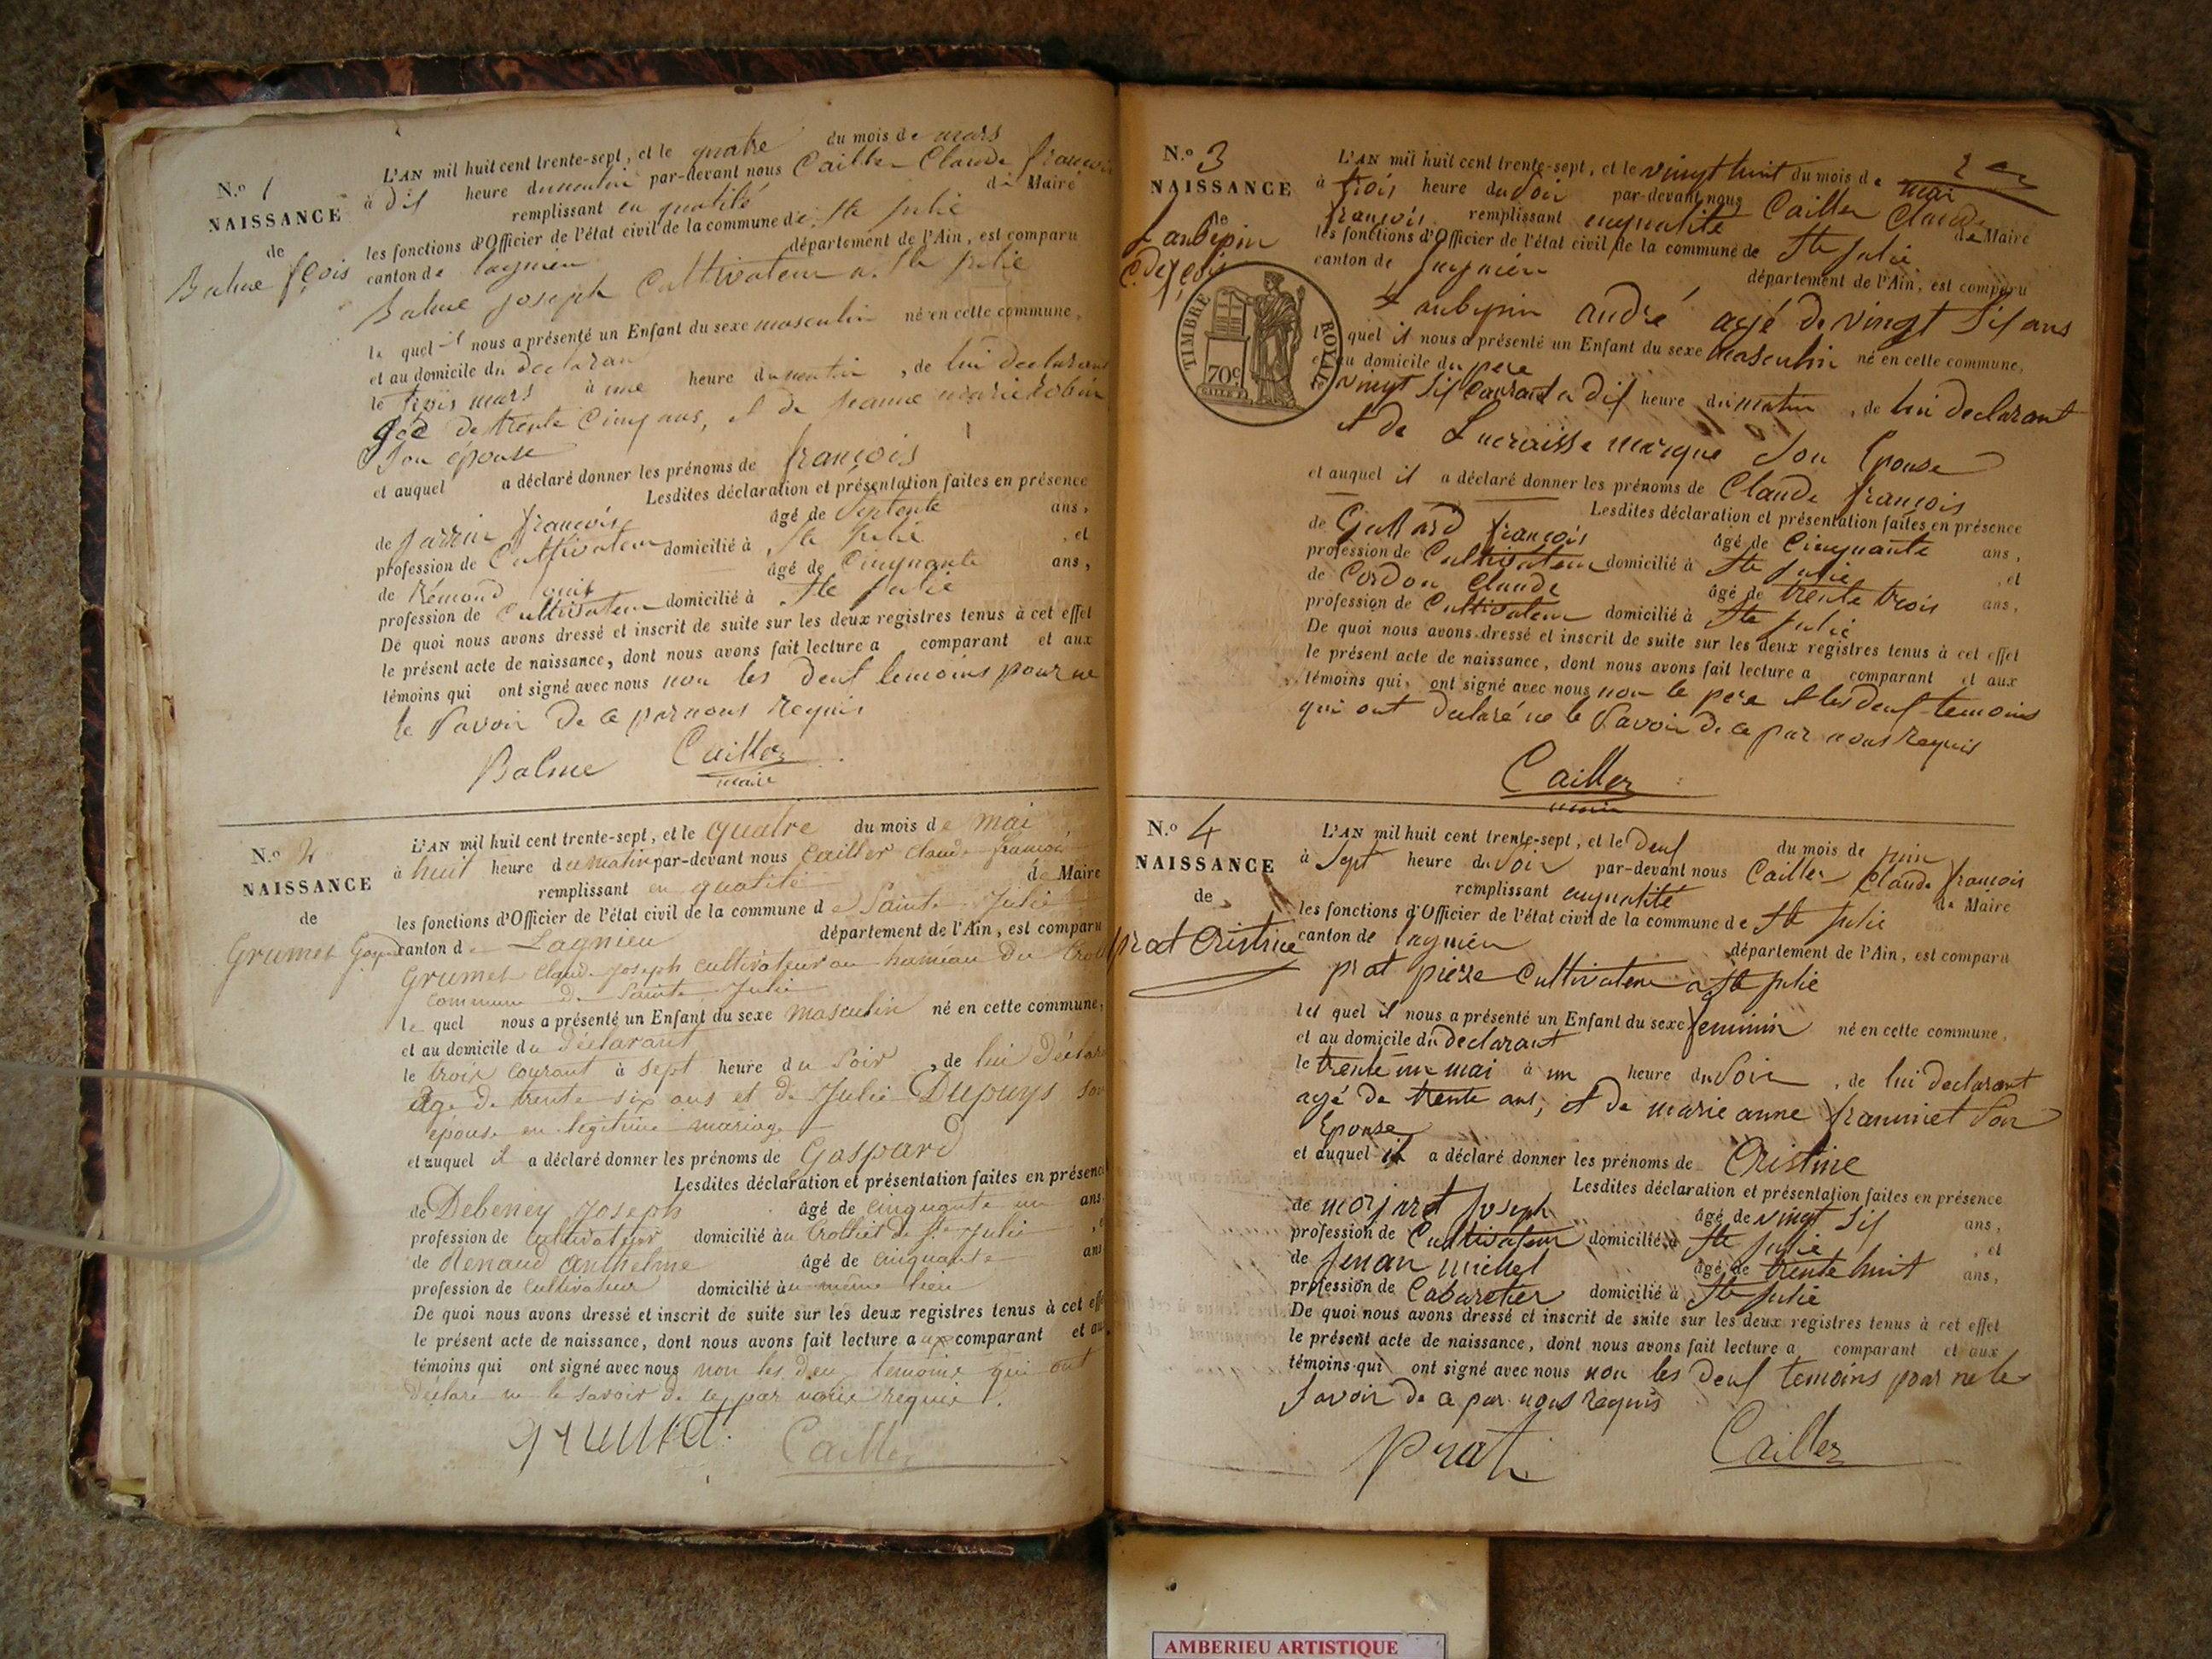 N.o 1
NAISSANCE
de
Balme fçois
L'AN mil huit cent trente-sept, et le quatre du mois de mars
à dix heure du matin par-devant nous Cailler Claude françois
remplissant en qualité de Maire
les fonctions d'Officier de l'état civil de la commune de Ste Julie
canton de lagnieu département de l'Ain, est comparu
Balme joseph Cultivateur a Ste Julie
le quel il nous a présenté un Enfant du sexe masculin né en cette commune,
et au domicile du declarant
le trois mars à une heure du matin, de lui declarant
agé de trente cinq ans, et de jeanne marie robin
Son épouse
et auquel a déclaré donner les prénoms de françois
Lesdites déclaration et présentation faites en présence
de jarrin françois âgé de Septente ans,
profession de Cultivateur domicilié à Ste Julie, et
de Rémond louis âgé de Cinquante ans,
profession de Cultivateur domicilié à Ste Julie
De quoi nous avons dressé et inscrit de suite sur les deux registres tenus à cet effet
le présent acte de naissance, dont nous avons fait lecture a comparant et aux
témoins qui ont signé avec nous non les deux temoins pour ne
le Savoir de ce par nous requis
Balme Cailler
maire
N.o 2
NAISSANCE
de
Grumet Gaspard
L'AN mil huit cent trente-sept, et le quatre du mois de mai
à huit heure du matin par-devant nous Cailler Claude françois
remplissant en qualité de Maire
les fonctions d'Officier de l'état civil de la commune de Sainte Julie
canton de Lagnieu département de l'Ain, est comparu
Grumet Claude joseph cultivateur au hameau du
commune de Sainte Julie
le quel nous a présenté un Enfant du sexe masculin né en cette commune,
et au domicile du déclarant
le trois courant à sept heure du Soir, de lui
âgé de trente six ans et de Julie Dupuys son
épouse en légitime mariage
et auquel il a déclaré donner les prénoms de Gaspard
Lesdites déclaration et présentation faites en présence
de Debeney joseph âgé de cinquante un ans,
profession de cultivateur domicilié au de Ste Julie
de Renaud anthelme âgé de cinquante ans
profession de cultivateur domicilié au même lieu
De quoi nous avons dressé et inscrit de suite sur les deux registres tenus à cet effet
le présent acte de naissance, dont nous avons fait lecture aux comparant et aux
témoins qui ont signé avec nous non les deux temoins qui ont
déclaré ne le savoir de ce par nous requis.
grumet Cailler
N.o 3
NAISSANCE
de
St aubepin
C.de fçois
TIMBRE ROYAL
70c
L'AN mil huit cent trente-sept, et le vingt huit du mois de mai
à trois heure du Soir par-devant nous Cailler Claude
françois remplissant enqualité de Maire
les fonctions d'Officier de l'état civil de la commune de Ste Julie
canton de lagnieu département de l'Ain, est comparu
St aubepin andré agé de vingt Six ans
lequel il nous a présenté un Enfant du sexe masculin né en cette commune,
et au domicile du pere
le vingt Six Courant a dix heure du matin, de lui declarant
et de Lucraisse marque Son Epouse
et auquel il a déclaré donner les prénoms de Claude françois
Lesdites déclaration et présentation faites en présence
de françois âgé de Cinquante ans,
profession de Cultivateur domicilié à Ste Julie, et
de Cordon Claude âgé de trente trois ans,
profession de Cultivateur domicilié à Ste Julie
De quoi nous avons dressé et inscrit de suite sur les deux registres tenus à cet effet
le présent acte de naissance, dont nous avons fait lecture a comparant et aux
témoins qui ont signé avec nous non le pere et les deux temoins
qui ont declaré ne le Savoir de ce par nous requis
Cailler
maire
N.o 4
NAISSANCE
de
prat Cristine
L'AN mil huit cent trente-sept, et le deux du mois de juin
à Sept heure du Soir par-devant nous Cailler Claude françois
remplissant enqualité de Maire
les fonctions d'Officier de l'état civil de la commune de Ste Julie
canton de lagnieu département de l'Ain, est comparu
prat pierre Cultivateur a Ste Julie
lequel il nous a présenté un Enfant du sexe feminin né en cette commune,
et au domicile du declarant
le trente un mai à un heure du Soir, de lui declarant
agé de trente ans, et de marie anne Son
Epouse
et auquel il a déclaré donner les prénoms de Cristine
Lesdites déclaration et présentation faites en présence
de morjaret Joseph âgé de vingt Six ans,
profession de Cultivateur domicilié à Ste Julie, et
de michel âgé de trente huit ans,
profession de Cabaretier domicilié à Ste Julie
De quoi nous avons dressé et inscrit de suite sur les deux registres tenus à cet effet
le présent acte de naissance, dont nous avons fait lecture a comparant et aux
témoins qui ont signé avec nous non les deux temoins pour ne le
Savoir de ce par nous requis
prat Cailler
AMBERIEU ARTISTIQUE